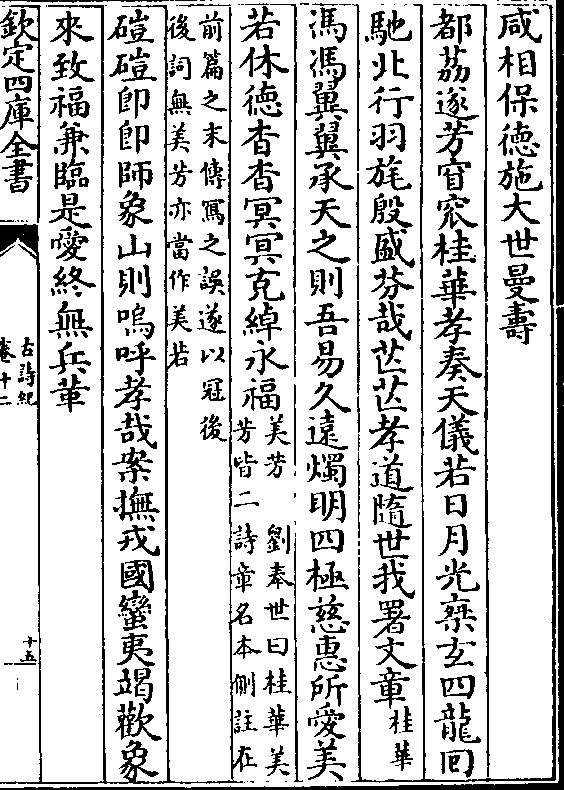 咸相保德施大世曼壽
都荔遂芳窅窊桂華孝奏天儀若日月光椉玄四龍囘
馳北行羽旄殷盛芬哉芒芒孝道隨世我署文章桂華
馮馮翼翼承天之則吾易久遠燭明四極慈惠所愛美
若休德杳杳冥冥克綽永福美芳　劉奉世曰桂華美
芳皆二詩章名本側註在
前篇之末傳寫之誤遂以冠後
後詞無美芳亦當作美若
磑磑卽卽師象山則嗚呼孝哉案撫戎國蠻夷竭歡象
來致福兼臨是愛終無兵革
欽定四庫全書
古詩紀
卷十二
十五